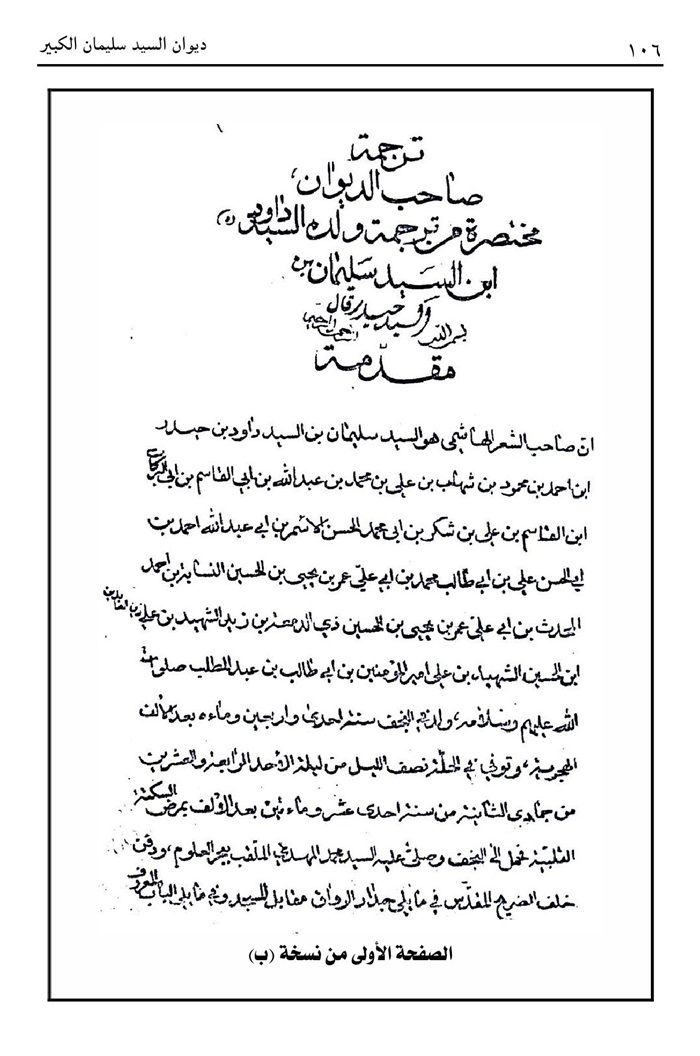 ١٠٦
ديوان السيد سليمان الكبير
١
ترجمة
صاحب الديوان
مختصرة من ترجمة ولده السيد داود (ه)
ابن السيد سليمان
وسيد حيدر قال
بسم الله الرحمن الرحيم
مقدمة
ان صاحب الشعر الهاشمي هو السيد سليمان بن السيد داود بن حيدر
ابن احمد بن محمود بن شهاب بن علي بن محمد بن عبد الله بن ابي القاسم بن ابي البركات
ابن القاسم بن علي بن شكر بن ابي محمد الحسن الاسمر بن ابي عبد الله احمد بن
ابي الحسن علي بن ابي طالب محمد بن ابي علي عمر بن يحيى بن الحسين النسابة بن احمد
المحدث بن ابي علي عمر بن يحيى بن الحسين ذي الدمعة بن زيد الشهيد بن علي زين العابدين
ابن الحسين الشهيد بن علي امير المؤمنين بن ابي طالب بن عبد المطلب صلوات
الله عليهم وسلامه، ولد في النجف سنة احدى واربعين وماءه بعد الالف
الهجرية، وتوفي في الحلة نصف الليل من ليلة الأحد الرابعة والعشرين
من جمادى الثانية من سنة احدى عشر وماءتين بعد الألف بمرض السكتة
القلبية فحمل الى النجف وصلى عليه السيد محمد المهدي الملقب ببحر العلوم، ودفن
خلف الضريح المقدس في ما يلي جدار الرواق مقابل للسيد وفي ما يلي الباب المعروف
الصفحة الأولى من نسخة (ب)